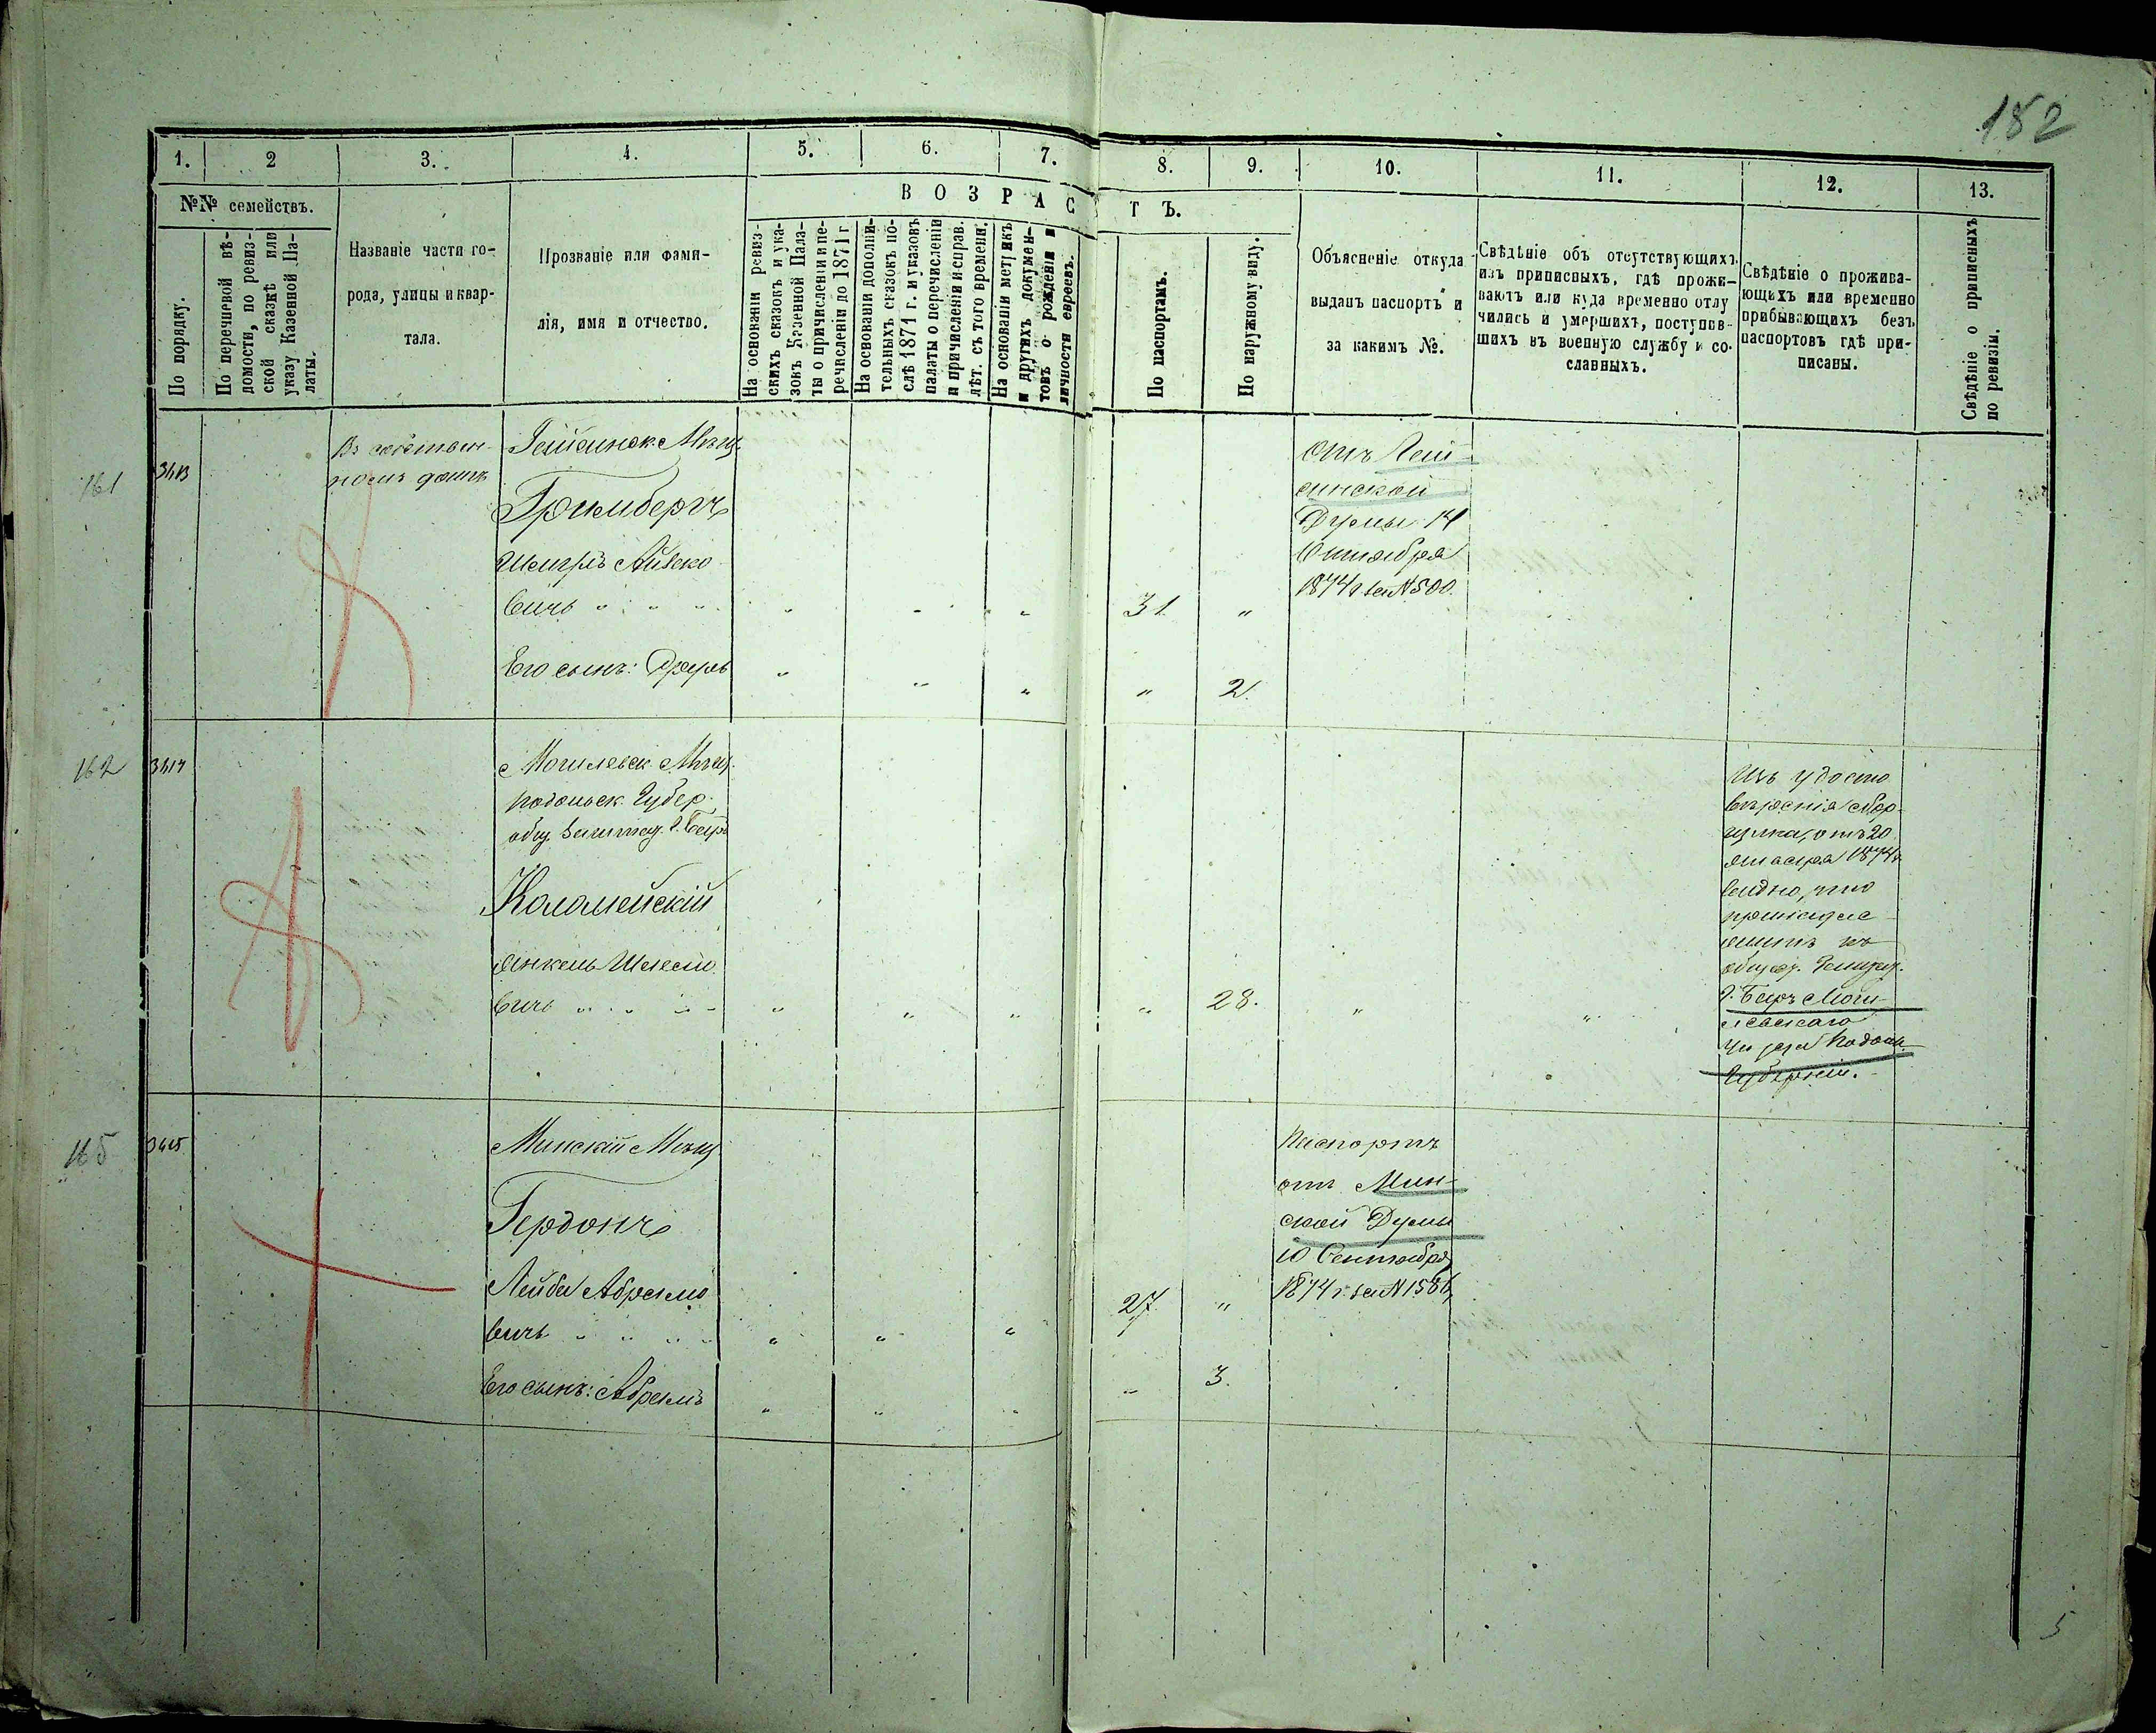 182
1. 2 3. 4. 5. 6. 7. 8. 9. 10. 11. 12. 13.
№№ семействъ.
По порядку.
По перечневой вѣ-
домости, по ревиз-
ской сказкѣ или
указу Казенной Па-
латы.
Названіе части го-
рода, улицы и квар-
тала.
Прозваніе или фами-
лія, имя и отчество.
ВОЗРАСТЪ.
На основаніи ревиз-
скихъ сказокъ и ука-
зокъ Казенной Пала-
ты о причисленіи и пе-
речисленіи до 1871 г
На основаніи дополни-
тельныхъ сказокъ по-
слѣ 1871 г. и указовъ
палаты о перечисленіи
и причисленіи и справ.
лѣт. съ того времени.
На основаніи метрикъ
и другихъ докумен-
товъ о рожденіи и
личности евреевъ.
По паспортамъ.
По наружному виду.
Объясненіе откуда
выданъ паспортъ и
за какимъ №.
Свѣдѣніе объ отсутствующихъ
изъ приписныхъ, гдѣ прожи-
ваютъ или куда временно отлу
чились и умершихъ, поступив-
шихъ въ военную службу и со-
славныхъ.
Свѣдѣніе о прожива-
ющихъ или временно
прибывающихъ безъ
паспортовъ гдѣ при-
писаны.
Свѣдѣніе о приписныхъ
по ревизіи.
161
Въ собствен-
номъ домѣ
Гайсинск. Мѣщ.
Гримбергъ
Айзико-
вичъ " " " " " " 31. "
Его сынъ: " " " " 2.
отъ Гай-
синской
Думы 14
Октября
1874 г за № 500.
162
Могилевск. Мѣщ.
Подольск. Губер.
Коломейскій
Янкель
вичъ " " " " " " " 28. " "
Изъ удосто
вѣренія сбор-
щика, отъ 20
1874 г.
видно, что
къ
Моги-
левскаго
уѣзда Подоль.
Губерніи.
165
3415
Минскій Мѣщ
Гердонъ
Лейба Абрамо
вичъ " " " " " " " 27. "
Его сынъ: Абрамъ " " " " 3.
Паспортъ
отъ Мин-
ской Думы
10 Сентября
1874 г. за № 1586,
5